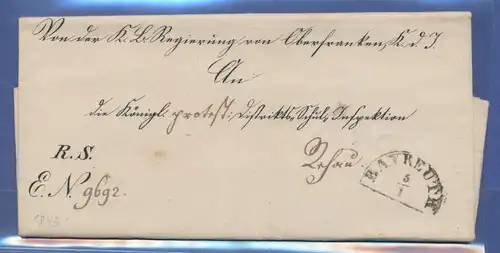 Von der K. B. Regierung von Oberfranken, K. d. I.
An
die Königl. protest. Distrikts-Schul-Inspektion
R. S.
Rehau.
E. N. 9692.
BAYREUTH
5
1
1843